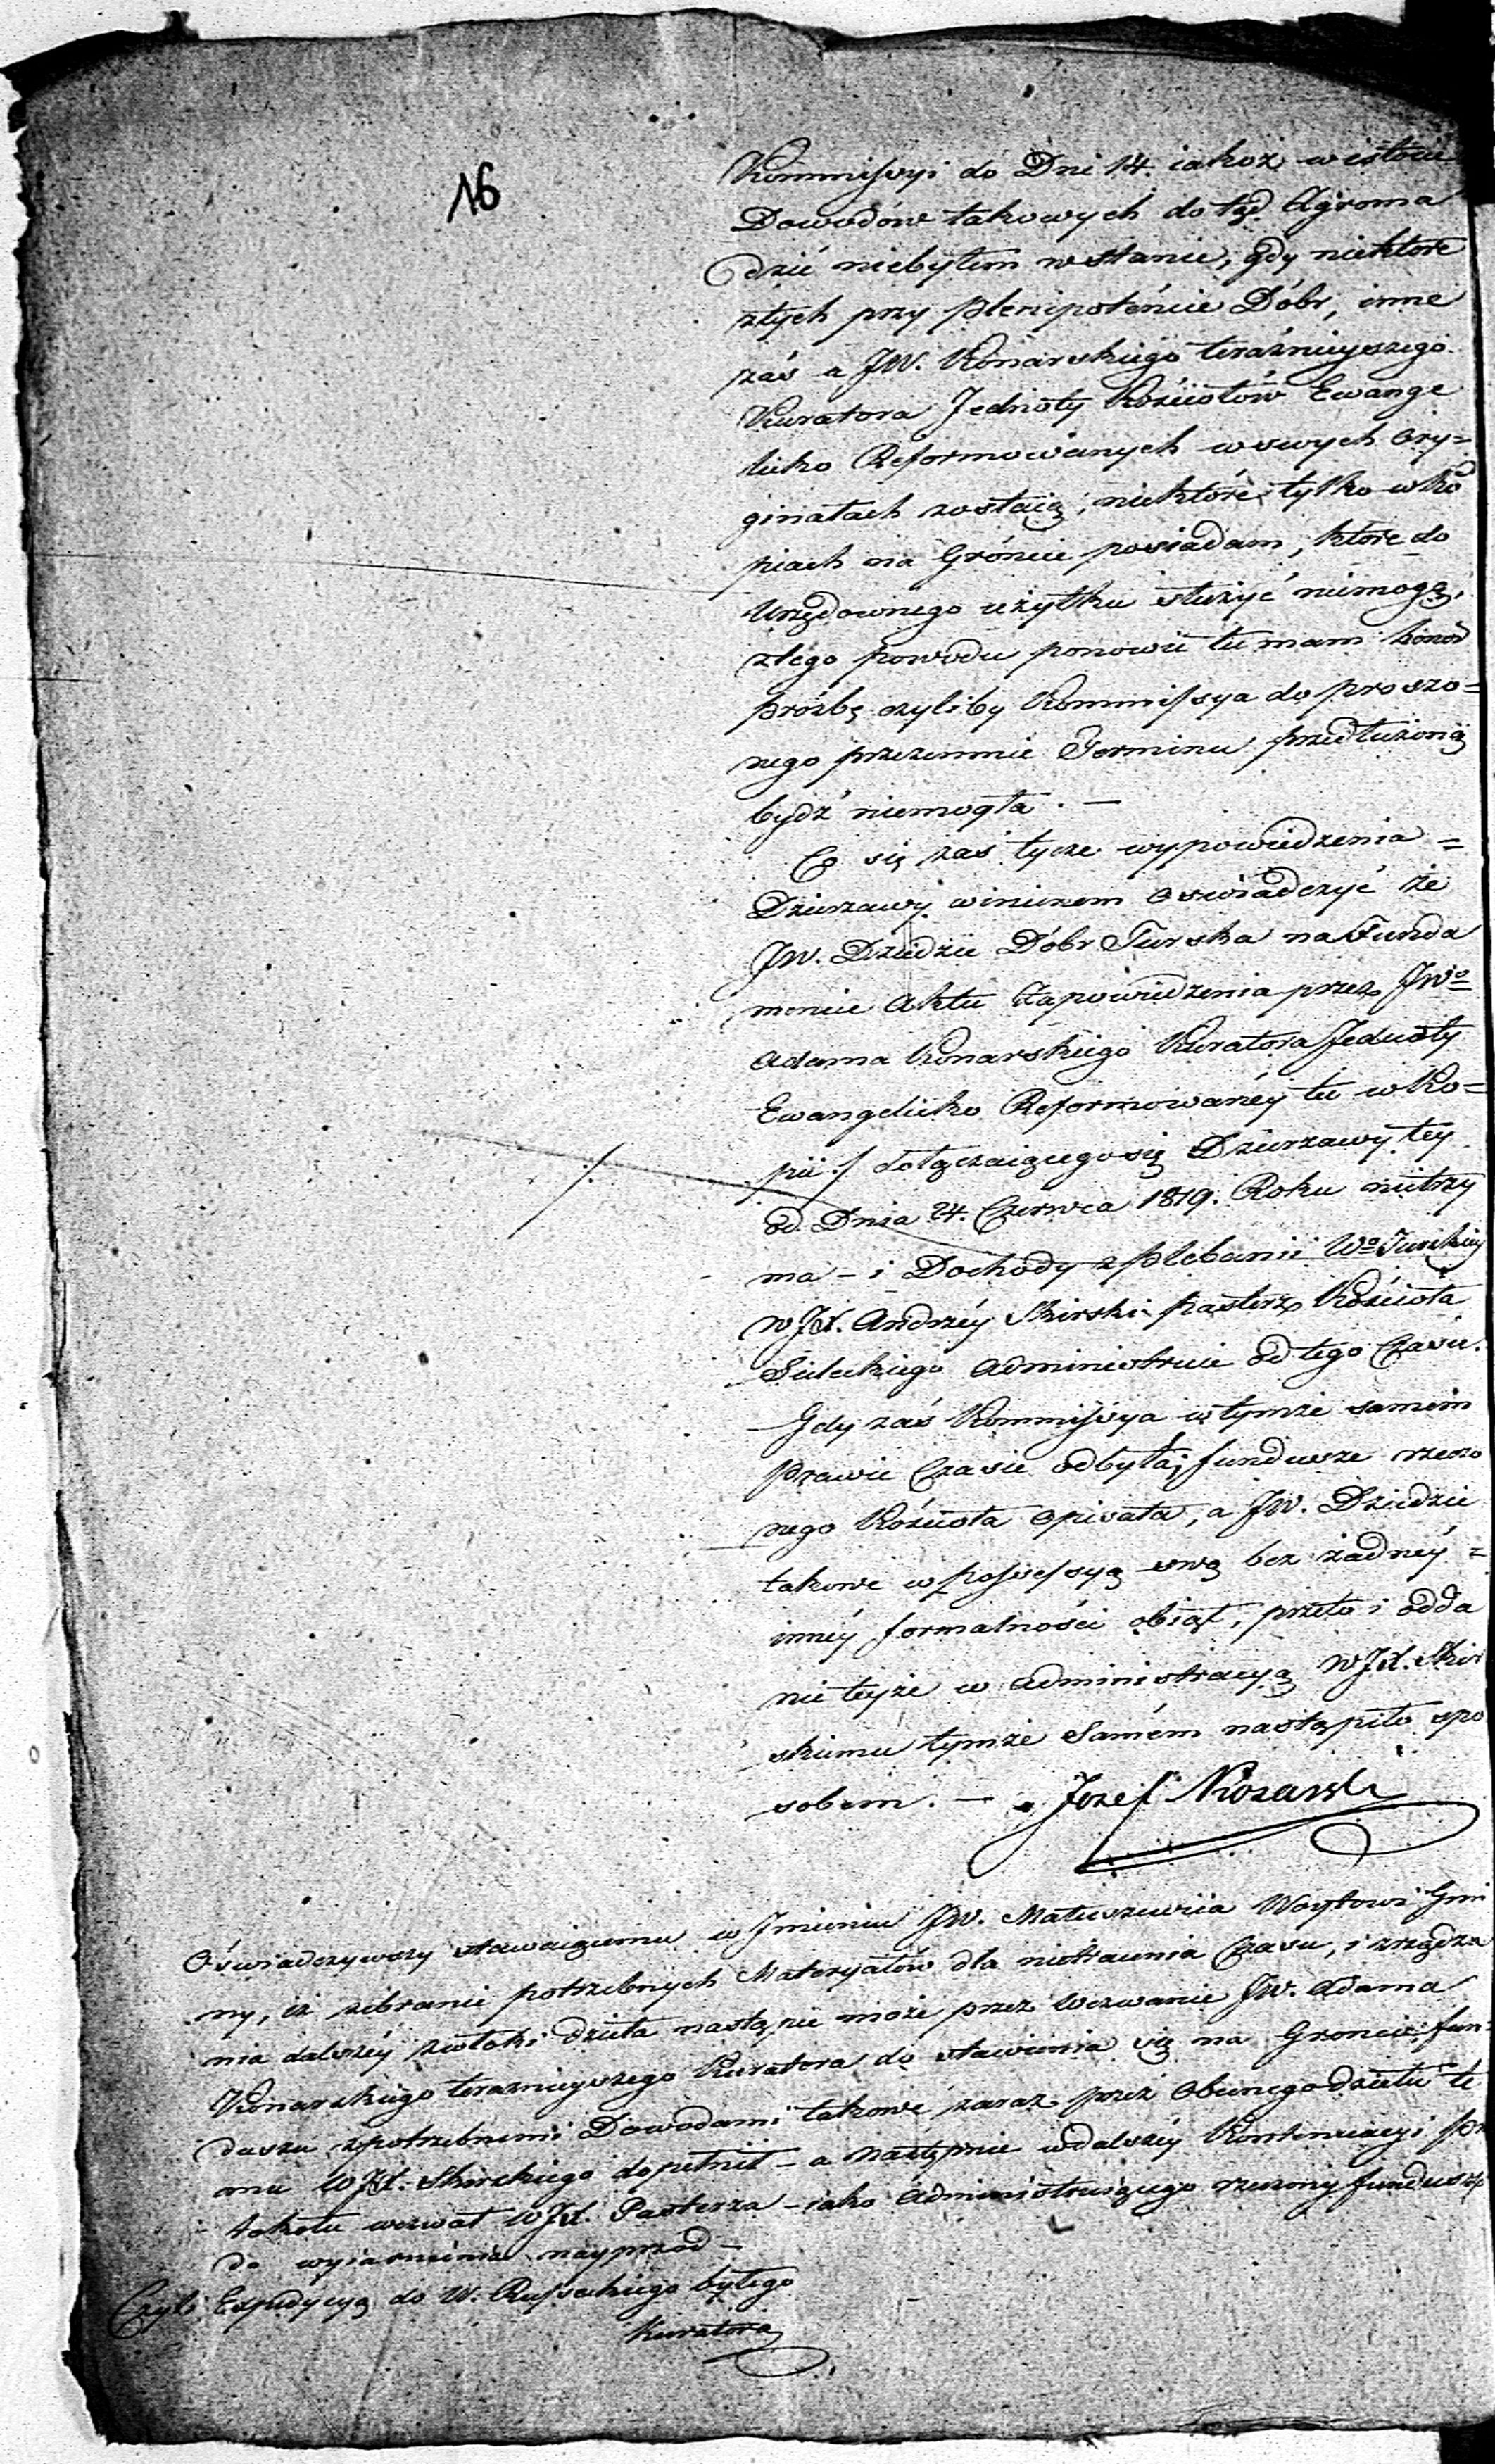 16
Kommissyi do Dni 14. iakoż w istocie
Dowodów takowych do tąd Zgroma
dzić niebyłem w stanie, gdy niektóre
z tych przy Plenipotencie Dóbr, inne
zaś u JW. Konarskiego teraźnieyszego
Kuratora Jednoty Kościołów Ewange
licko Reformowanych w swych Ory=
ginałach zostaią, niektóre tylko w ko
piach na Gróncie posiadam, które do
Urzędownego użytku służyć niemogą,
z tego powodu ponowić tu mam honor
prózbę czyliby Kommissya do proszo=
nego przezemnie Terminu przedłużoną
bydź niemogła. —
Co się zaś tycze wypowiedzenia =
Dzierzawy winienem oświadczyć że
JW. Dziedzic Dóbr Turska na Funda
mencie Aktu Zapowiedzenia przez JWo
Adama Konarskiego Kuratora Jednoty
Ewangelicko Reformowanéy tu w Ko=
pii ./. dołączaiącego się Dzierzawy tey
od Dnia 24. Czerwca 1819. Roku nietrzy
ma – i Dochody z Plebanii Wo Turskiey
WJX. Andrzéy Skierski Pasterz Kościoła
Sieleckiego administruie od tego Czasu.
./.
Gdy zaś Kommissya w tymże samem
Prawie Czasie odbyła, fundusze rzeczo
nego Kościoła opisała, a JW. Dziedzic
takowe w possessyą swą bez żadnéy =
innéy formalności obiął, przeto i odda
nie teyże w administracyą WJX. Skier
skiemu tymże Samém nastąpiło spo
sobem. — Jozef Kozarski
Oświadczywszy stawaiącemu w Imieniu JW. Matuszewica Woytowi Gmi
ny, iż zebranie potrzebnych Materyałów dla nietracenia Czasu, i zrządza
nia dalszéy zwłoki dzieła nastąpić może przez wezwanie JW. Adama
Konarskiego teraznieyszego Kuratora do stawienia się na Groncie fun=
duszu z potrzebnemi Dowodami takowe zaraz przez Obecnego dziełu te
mu WJX. Skierskiego dopełnił – a następnie w dalszéy Kontinuacyi Pro
tokołu wezwał WJX. Pasterza – iako administruiącego rzeczony fundusz
do wyiaśnienia nayprzód –
Czyli Expedycyą do W. Russockiego byłego
Kuratora